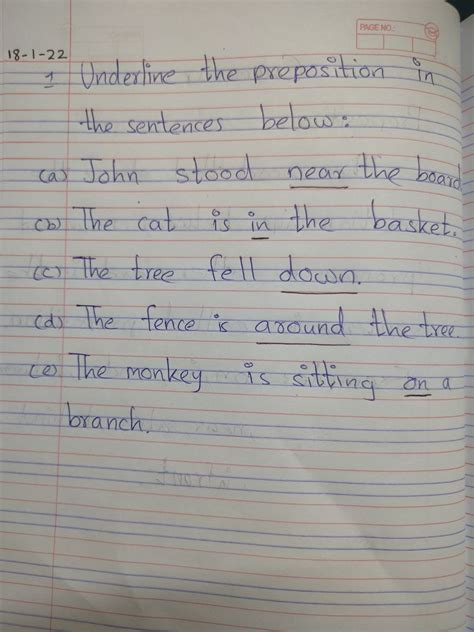 PAGE NO.:
18-1-22
1 Underline the preposition in
the sentences below:
(a) John stood near the board
(b) The cat is in the basket.
(c) The tree fell down.
(d) The fence is around the tree.
(e) The monkey is sitting on a
branch.